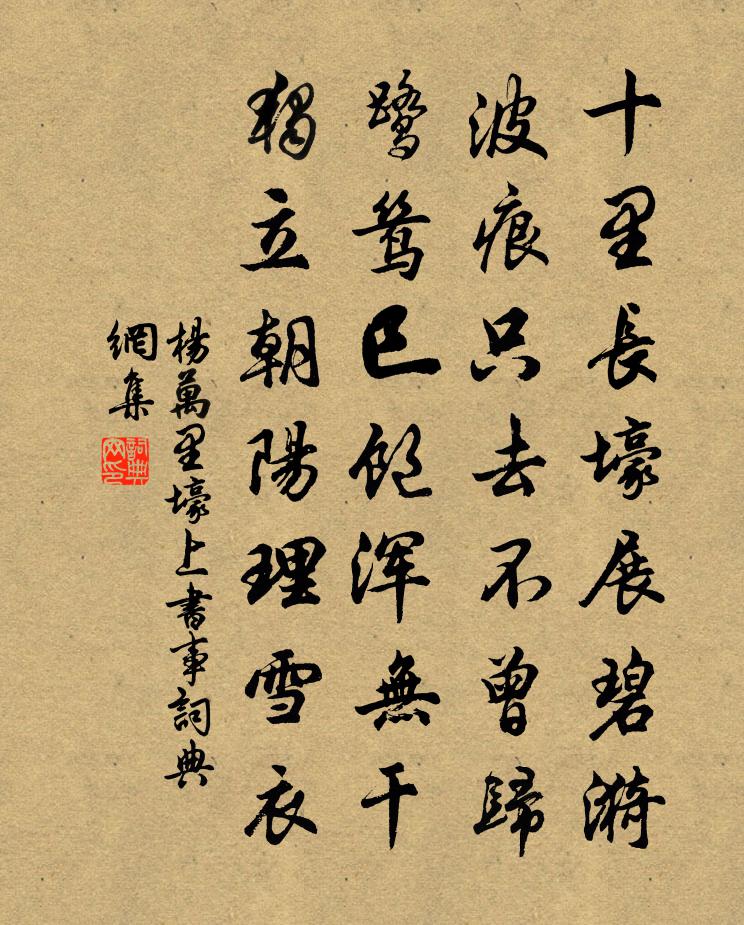 十里長壕展碧漪
波痕只去不曾歸
鷺鷥已飽渾無干
獨立朝陽理雪衣
楊萬里壕上書事詞典
網集
詞典
网印